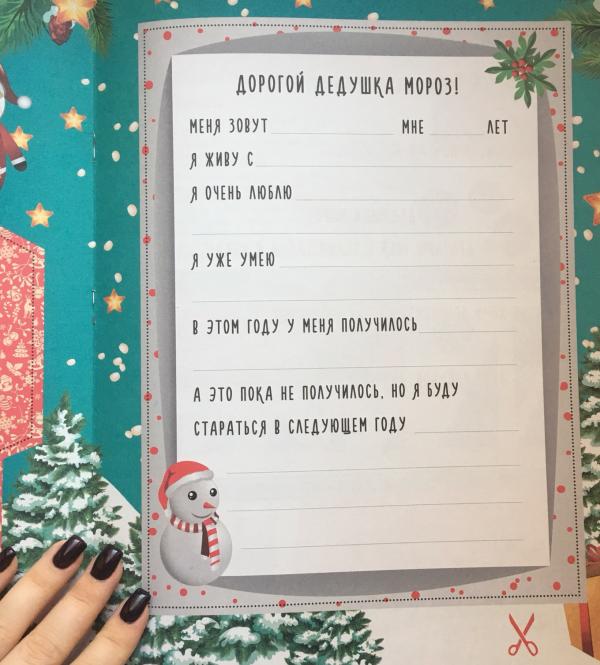 ДОРОГОЙ ДЕДУШКА МОРОЗ!
МЕНЯ ЗОВУТ МНЕ ЛЕТ
Я ЖИВУ С
Я ОЧЕНЬ ЛЮБЛЮ
Я УЖЕ УМЕЮ
В ЭТОМ ГОДУ У МЕНЯ ПОЛУЧИЛОСЬ
А ЭТО ПОКА НЕ ПОЛУЧИЛОСЬ, НО Я БУДУ
СТАРАТЬСЯ В СЛЕДУЮЩЕМ ГОДУ